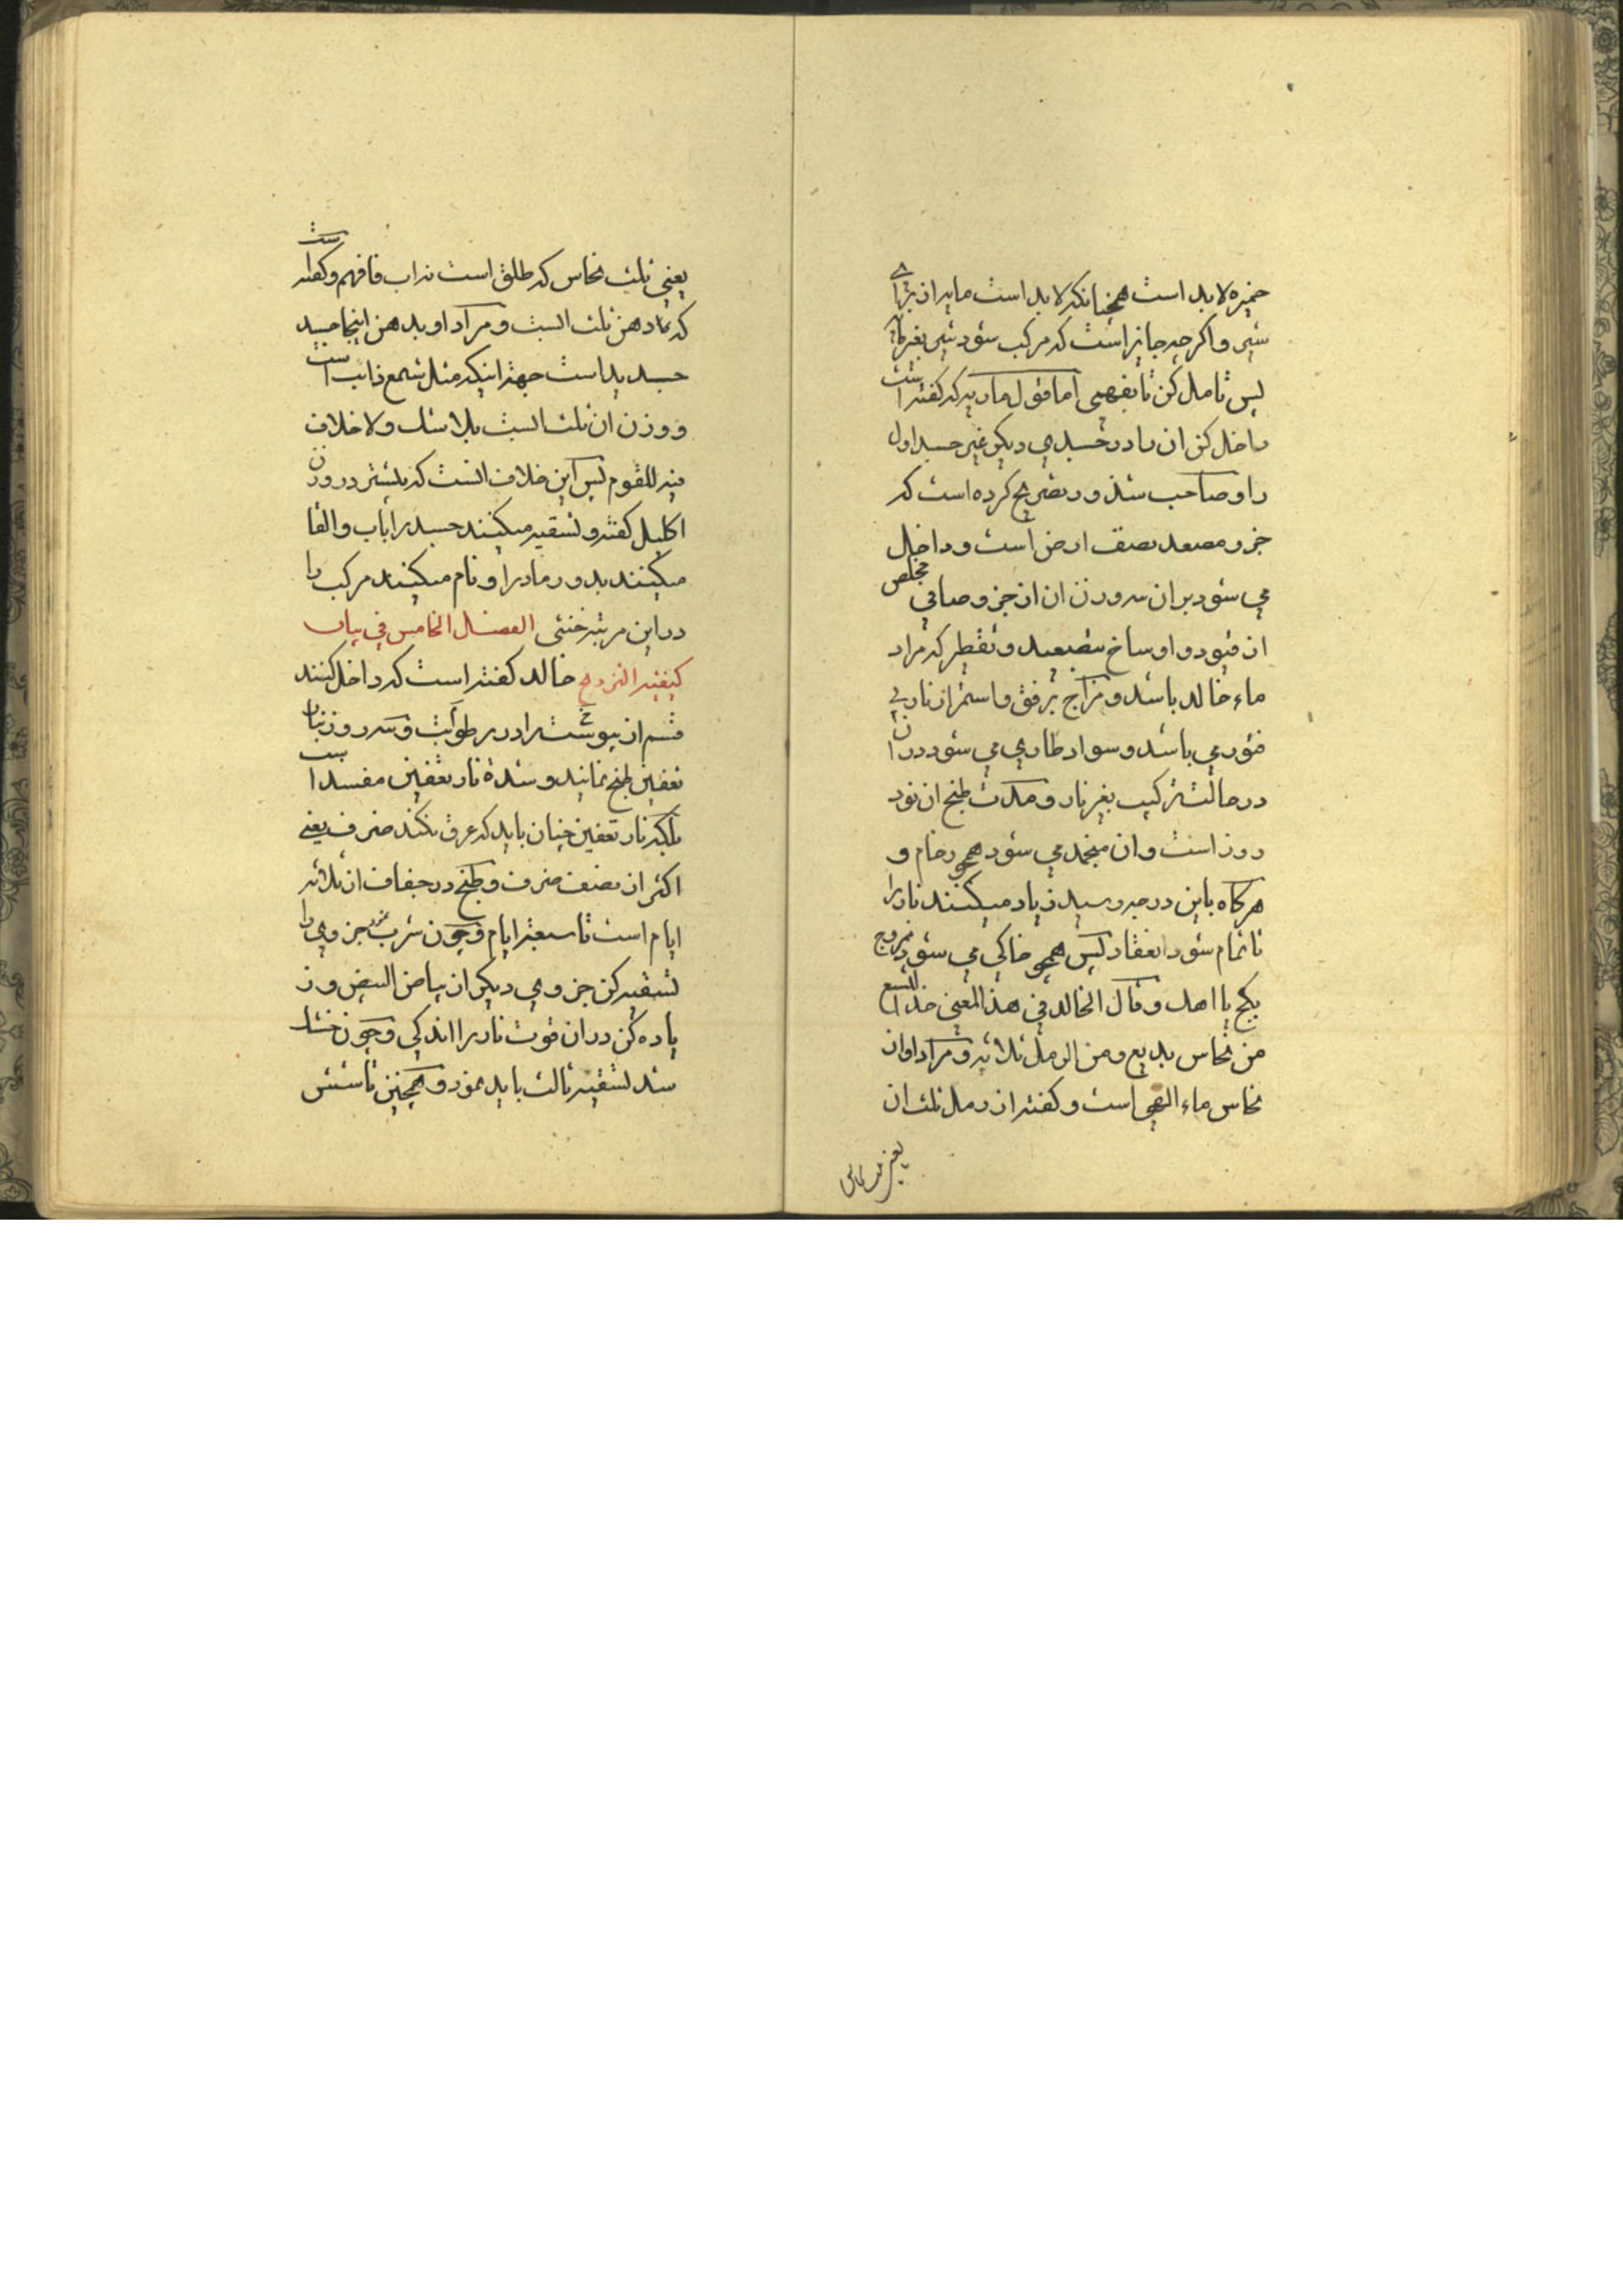 خمیره لابد است همچنانکه لابد است مایه از برای
شیر و اکرچه جایز است که مرکب شود شیر بغیر مایه
پس تامل کن تا بفهمی اما قول ماریه که کفته است
داخل کن ان را در جسدی دیکر غیر جسد اول
را و صاحب شذور تصریح کرده است که
جزو مصعد نصف ارض است و داخل
می شود بر ان سه وزن ان از جزو صافی مخلص
از قیود و اوساخ بتصعید و تقطیر که مراد
ماء خالد باشد و مزاج برفق و استمرار نار بی
فتور می باشد و سواد طاری می شود در ان
در حالت ترکیب بغیر نار و مدت طبخ ان نود
روز است و ان منجمد می شود همچو رخام و
هرکاه باین درجه رسید زیاد میکنند نار را
تا تمام شود انعقاد پس همچو خاکی می شود ممزوج
بکج یا اهك و قال الخالد فی هذا المعنی خذ التسع
من نحاس بدیع و من الرمل ثلاثه و مراد او از
نحاس ماء الهی است و کفته از رمل ثلث ان
یعنی ثلث نحاس
یعنی ثلث نحاس که طلق است تراب فافهم و کفته است
که دهن ثلث الست و مراد او بدهن اینجا جسد
جسدید است جهة اینکه مثل شمع ذائب است
و وزن ان ثلث الست بلا شك و لا خلاف
فیه للقوم پس این خلاف الست که پیشتر در وزن
اکلیل کفته و تسقیه میکنند جسد را باب و القا
میکنند بدو رماد را و نام میکنند مرکب را
در این مرتبه خنثی الفصل الخامس فی بیان
کیفیه التزویج خالد کفته است که داخل کنند
قسم از یبوست را در رطوبت و سه روز بنار
تعفین طبخ نمایند و شدة نار تعفین مفسد است
بلکه نار تعفین چنان باید که عرق نکند ضرف یعنی
اکثر از نصف ضرف و طبخ در جفاف از ثلاثه
ایام است تا سبعة ایام و چون شرب جزوی را
تسقیه کن جزوی دیکر از بیاض البیض و ز
یاده کن در ان قوت نار را اندکی و چون خشك
شد تسقیه ثالث باید نمود و همچنین تا شش